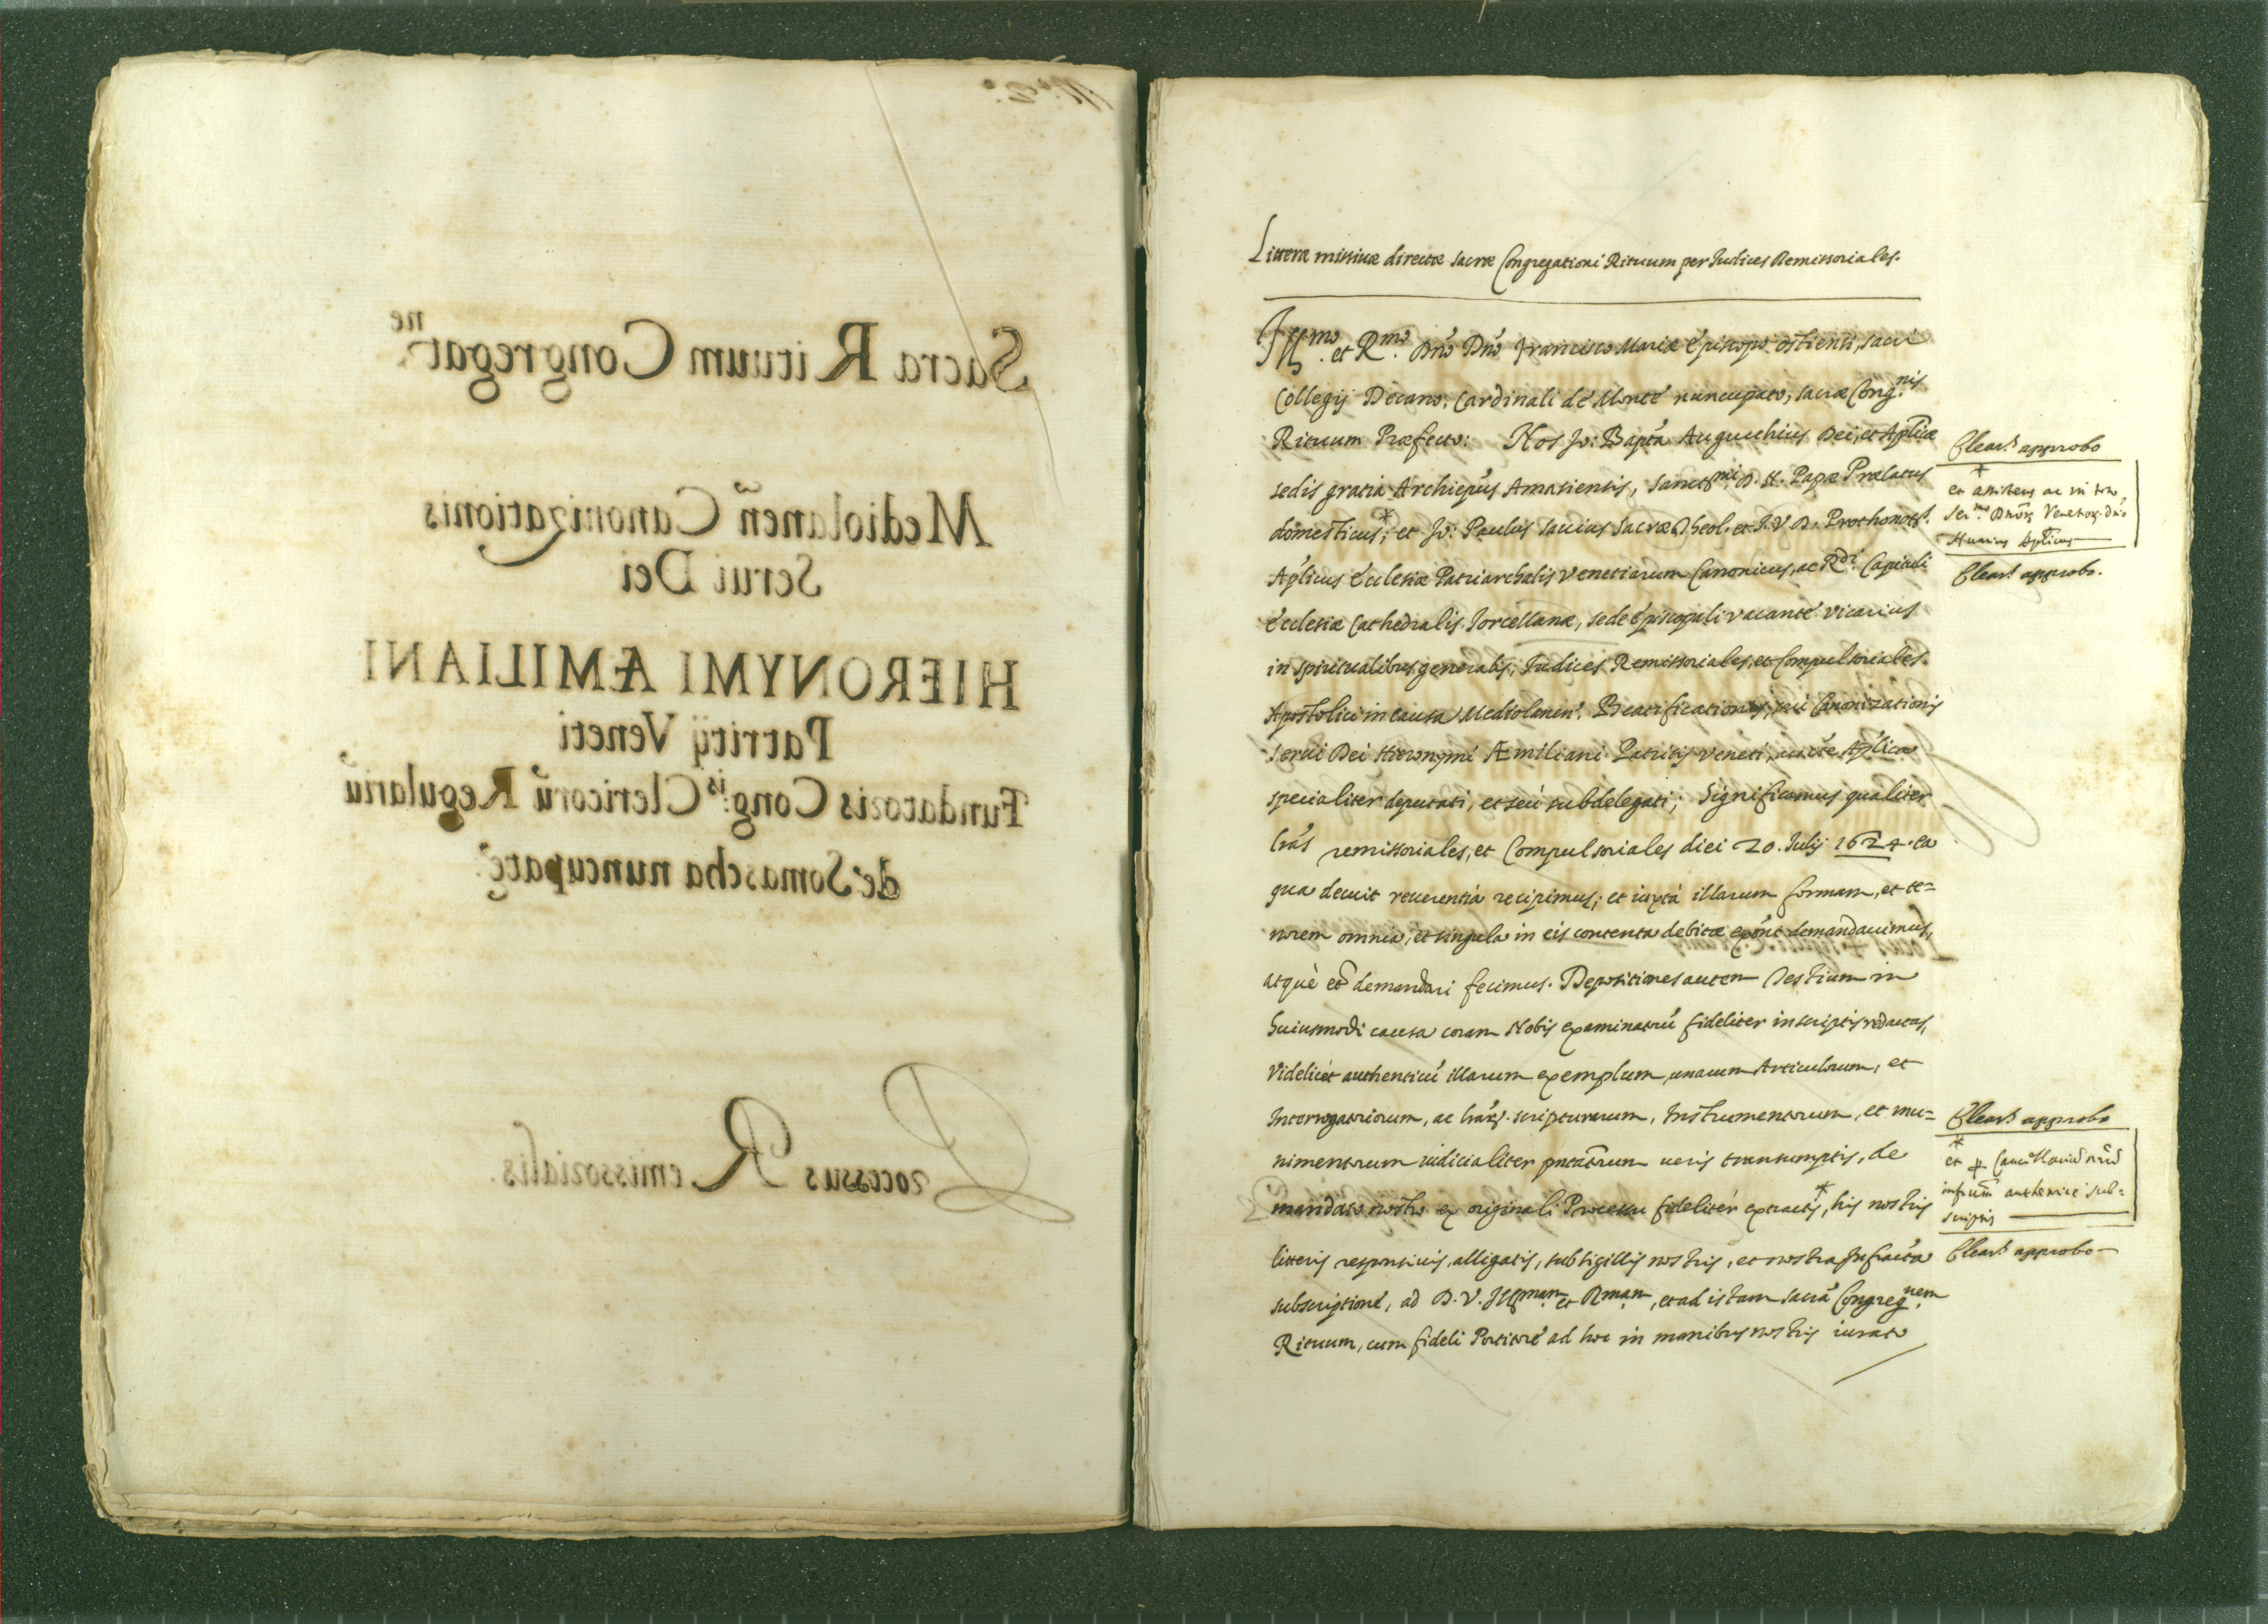 Sacra Rituum Congregat.ne
Mediolaneñ Canonizationis
Serui Dei
HIERONYMI ÆMILIANI
Patritij Veneti
Fundatoris Cong.is Clericorũ Regulariũ
de Somascha nuncupatę
Processus Remissorialis.
Litteræ missiuæ directæ sacræ Congregationi Rituum per Iudices Remissoriales.
Ill.mo et R.mo Dnõ Dnõ Francisco Mariæ Episcopo Ostiensi, sacri
Collegij Decano, Cardinali de Monte nuncupato, sacræ Cong.nis
Rituum Præfecto: Nos Jo: Bapta Agucchius Dei, et Aplicæ
sedis gratia Archiepus Amasiensis, sanct.mi D. N. Papæ Prælatus
domesticus,* et Jo: Paulus sauius Sacræ Theol. et I. V. D. Prothonot.
Aplicus Ecclesiæ Patriarchalis Venetiarum Canonicus, ac R.di Capituli
Ecclesiæ Cathedralis Torcellanæ, sede Episcopali vacante Vicarius
in spiritualibus generalis, Iudices Remissoriales, et Compulsoriales
Apostolici in causa Mediolanen. Beatificationis, seu Canonizationis
serui Dei Hieronymi Æmiliani Patritij Veneti, aucte Aplica
specialiter deputati, et seu subdelegati; Significamus qualiter
lras remissoriales, et Compulsoriales diei 20. Iulij 1624. ea
qua decuit reuerentia recipimus; et iuxta illarum formam, et te=
norem omnia, et singula in eis contenta debitæ exont demandauimus,
atque et demandari fecimus. Depositiones autem Testium in
huiusmodi causa coram Nobis examinatorũ fideliter in scriptis redactas,
Videlicet authenticũ illarum exemplum, unacum Articulorum, et
Interrogatoriorum, ac lrarum scripturarum, Instrumentorum, et mu=
nimentorum iudicialiter pntatorum ueris transumptis, de
mandato nostro ex originali Processu fideliter extractis,* his nostris
litteris responsiuis, alligatis, sub sigillis nostris, et nostra infracta
subscriptione, ad D. V. Ill.mam et R.mam, et ad istam sacrã Congreg.nem
Rituum, cum fideli Portitore ad hoc in manibus nostris iurato
approbo
* et assistens ac in toto
Ser.mo Dnorum Venetorum Dnio
Nunius Aplicus
approbo.
approbo
* et
infrum authentice sub=
scriptis
approbo